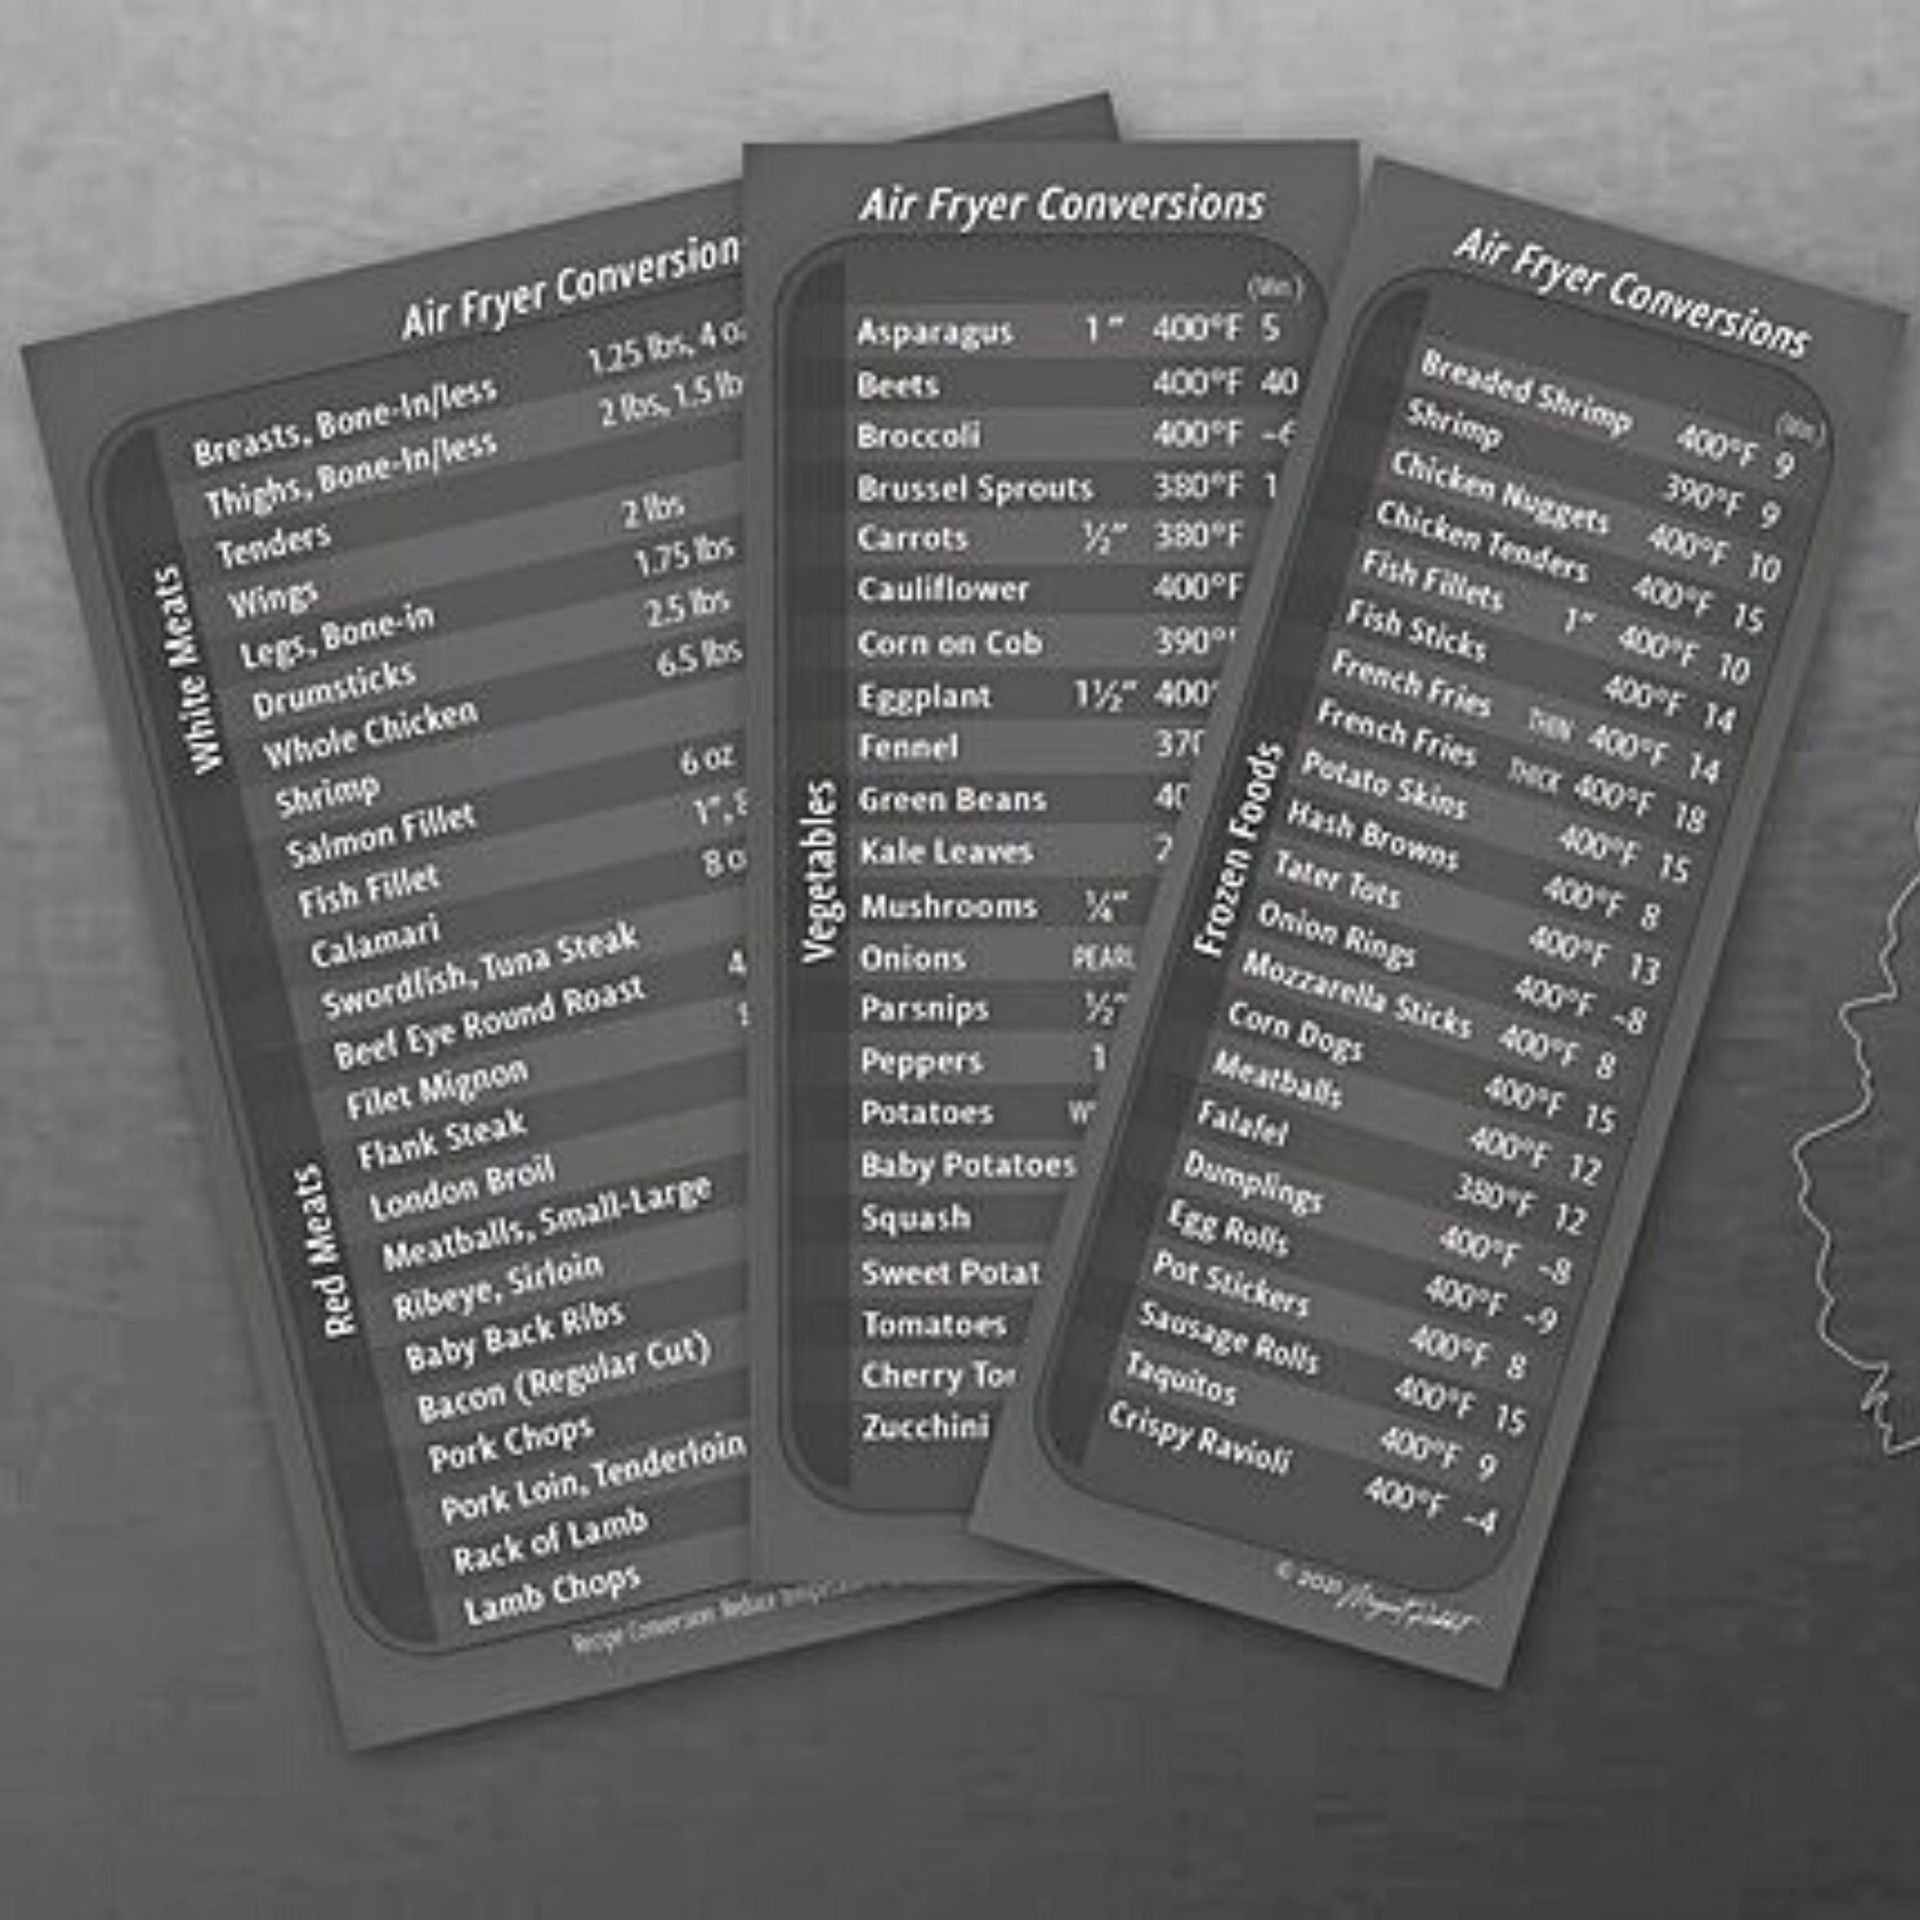 Air Fryer Conversion
White Meats
Breasts, Bone-In/less 1.25 lbs, 4 oz
Thighs, Bone-In/less 2 lbs, 1.5 lb
Tenders
Wings 2 lbs
Legs, Bone-in 1.75 lbs
Drumsticks 2.5 lbs
Whole Chicken 6.5 lbs
Shrimp
Salmon Fillet 6 oz
Fish Fillet 1",
Calamari 8 o
Swordfish, Tuna Steak
Red Meats
Beef Eye Round Roast 4
Filet Mignon
Flank Steak
London Broil
Meatballs, Small-Large
Ribeye, Sirloin
Baby Back Ribs
Bacon (Regular Cut)
Pork Chops
Pork Loin, Tenderloin
Rack of Lamb
Lamb Chops
Recipe Conversion: Reduce
Air Fryer Conversions
Vegetables
(Min)
Asparagus 1" 400°F 5
Beets 400°F 40
Broccoli 400°F
Brussel Sprouts 380°F 1
Carrots ½" 380°F
Cauliflower 400°F
Corn on Cob 390°
Eggplant 1½" 400°
Fennel 370
Green Beans 40
Kale Leaves 2
Mushrooms ¼"
Onions PEARL
Parsnips ½"
Peppers 1
Potatoes
Baby Potatoes
Squash
Sweet Potat
Tomatoes
Cherry Tom
Zucchini
Air Fryer Conversions
Frozen Foods
(Min)
Breaded Shrimp 400°F 9
Shrimp 390°F 9
Chicken Nuggets 400°F 10
Chicken Tenders 400°F 15
Fish Fillets 1" 400°F 10
Fish Sticks 400°F 14
French Fries THIN 400°F 14
French Fries THICK 400°F 18
Potato Skins 400°F 15
Hash Browns 400°F 8
Tater Tots 400°F 13
Onion Rings 400°F -8
Mozzarella Sticks 400°F 8
Corn Dogs 400°F 15
Meatballs 400°F 12
Falafel 380°F 12
Dumplings 400°F -8
Egg Rolls 400°F -9
Pot Stickers 400°F 8
Sausage Rolls 400°F 15
Taquitos 400°F 9
Crispy Ravioli 400°F -4
© 2021